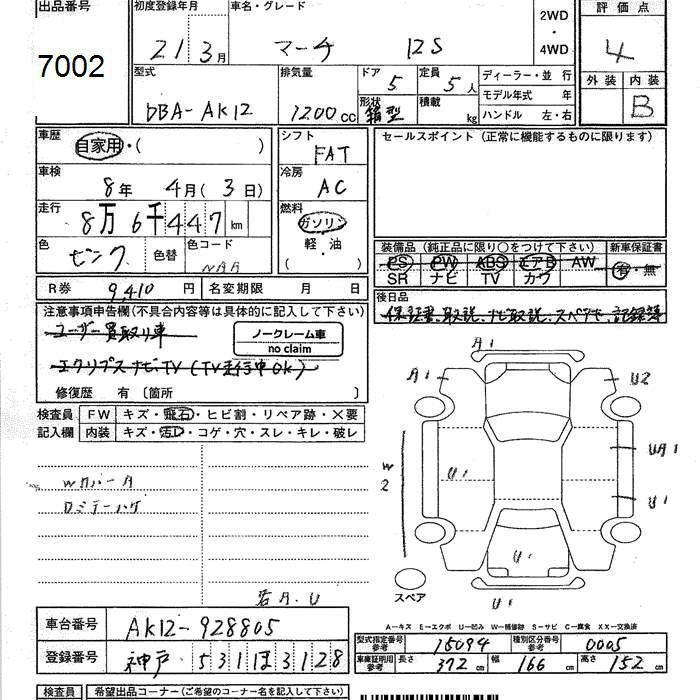 出品番号 初度登録年月 車名・グレード 2WD ・ 4WD 評価点
7002 21 3月 マーチ 12S 4
型式 排気量 ドア 5 定員 5人 ディーラー・並行 外装 内装
DBA-AK12 1200cc 形状 箱型 積載 kg モデル年式 年 B
ハンドル 左・右
車歴 自家用・( ) シフト FAT セールスポイント(正常に機能するものに限ります)
車検 8年 4月(3日) 冷房 AC
走行 8万6千447km 燃料 ガソリン 軽・油 ( )
色 ピンク 色替 色コード NAA 装備品(純正品に限り○をつけて下さい) 新車保証書
PS PW ABS エアB AW 有・無
SR ナビ TV カワ
R券 9,410円 名変期限 月 日 後日品
注意事項申告欄(不具合内容等は具体的に記入して下さい) 保証書、取説、ナビ取説、スペアキー、記録簿
ユーザー買取り車 ノークレーム車 no claim
エクリプスナビTV(TV走行中OK)
修復歴 有〔箇所 〕
検査員 FW キズ・飛石・ヒビ割・リペア跡・×要
記入欄 内装 キズ・汚レ・コゲ・穴・スレ・キレ・破レ
A1
A1 U2
UA1
W2 U1 U1
Wカバー
U1
スペア U1
若A.U
A-キズ E-エクボ U-凹み W-補修跡 S-サビ C-腐食 XX-交換済
車台番号 AK12-928805 型式指定番号 参考 15094 種別区分番号 参考 0005
登録番号 神戸 531 ほ 3128 車庫証明用 参考 長さ 372cm 幅 166cm 高さ 152cm
検査員 希望出品コーナー(ご希望のコーナー名を記入して下さい)